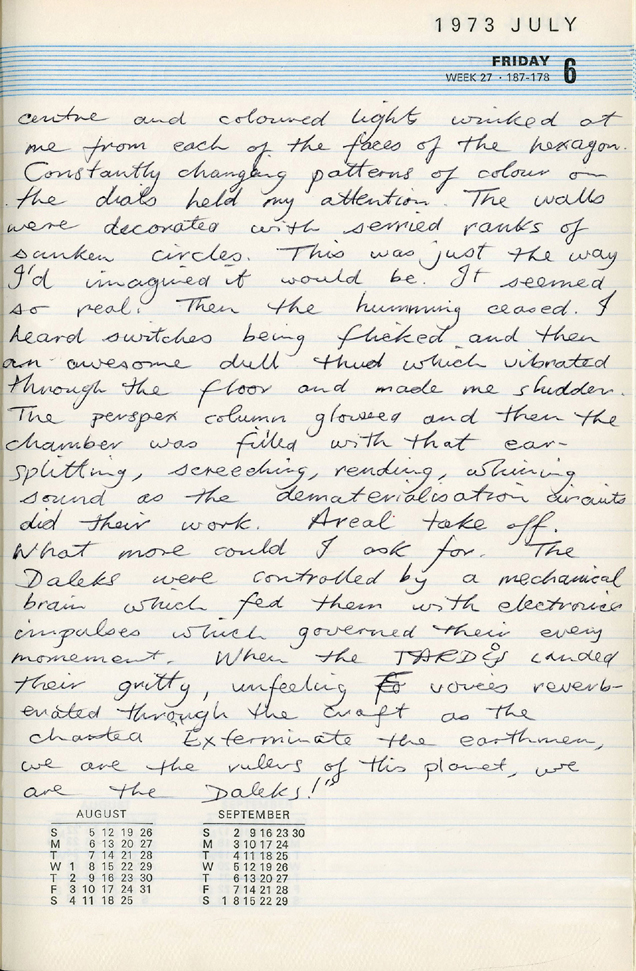 1973 JULY
FRIDAY 6
WEEK 27 · 187-178
centre and coloured lights winked at
me from each of the faces of the hexagon.
Constantly changing patterns of colour on
the dials held my attention. The walls
were decorated with serried ranks of
sunken circles. This was just the way
I'd imagined it would be. It seemed
so real. Then the humming ceased. I
heard switches being flicked and then
an awesome dull thud which vibrated
through the floor and made me shudder.
The perspex column glowed and then the
chamber was filled with that ear-
splitting, screeching, rending, whining
sound as the dematerialisation circuits
did their work. A real take off.
What more could I ask for. The
Daleks were controlled by a mechanical
brain which fed them with electronic
impulses which governed their every
momement. When the TARDIS landed
their gritty, unfeeling voices reverb-
erated through the craft as the
chanted "Exterminate the earthmen,
we are the rulers of this planet, we
are the Daleks!"
AUGUST
S 5 12 19 26
M 6 13 20 27
T 7 14 21 28
W 1 8 15 22 29
T 2 9 16 23 30
F 3 10 17 24 31
S 4 11 18 25
SEPTEMBER
S 2 9 16 23 30
M 3 10 17 24
T 4 11 18 25
W 5 12 19 26
T 6 13 20 27
F 7 14 21 28
S 1 8 15 22 29